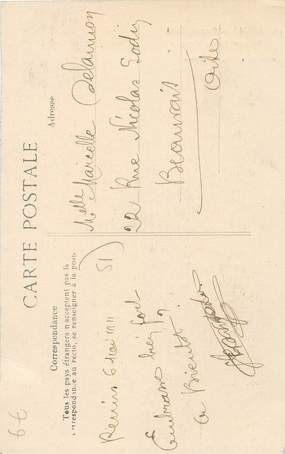 CARTE POSTALE
Correspondance
Tous les pays étrangers n'acceptent pas la
correspondance au recto, se renseigner à la poste
Adresse
Reims 6 Mai 1911
51
Embrasse bien fort
a Bientot
Melle Marcelle Delannoy
22 Rue Nicolas Godin
Beauvais
Oise
6€